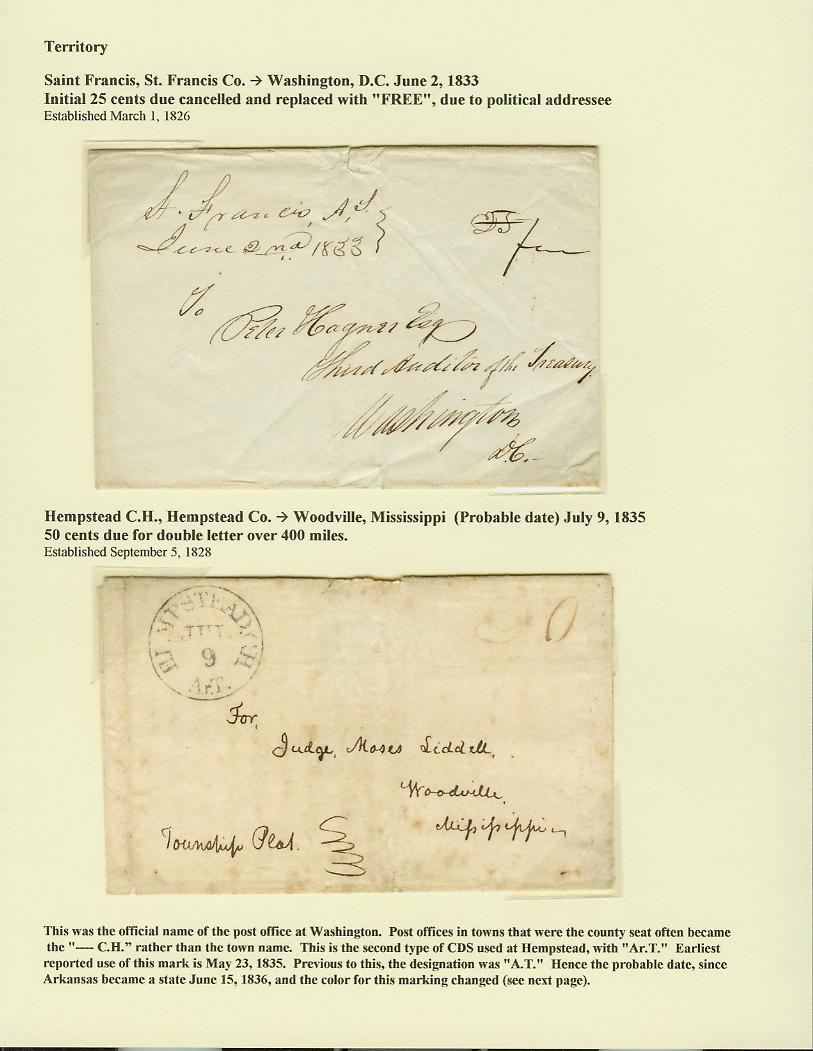 Territory
Saint Francis, St. Francis Co. → Washington, D.C. June 2, 1833
Initial 25 cents due cancelled and replaced with "FREE", due to political addressee
Established March 1, 1826
St. Francis, A,T.
June 2nd 1833
25
free
To
Peter Hagner Esq
Third Auditor of the Treasury
Washington
D.C.
Hempstead C.H., Hempstead Co. → Woodville, Mississippi (Probable date) July 9, 1835
50 cents due for double letter over 400 miles.
Established September 5, 1828
HEMPSTEAD C.H.
JUL.
9
Ar.T.
For,
Judge, Moses Liddell,
Woodville,
Mississippi
Township Plat.
This was the official name of the post office at Washington. Post offices in towns that were the county seat often became
the "---- C.H." rather than the town name. This is the second type of CDS used at Hempstead, with "Ar.T." Earliest
reported use of this mark is May 23, 1835. Previous to this, the designation was "A.T." Hence the probable date, since
Arkansas became a state June 15, 1836, and the color for this marking changed (see next page).